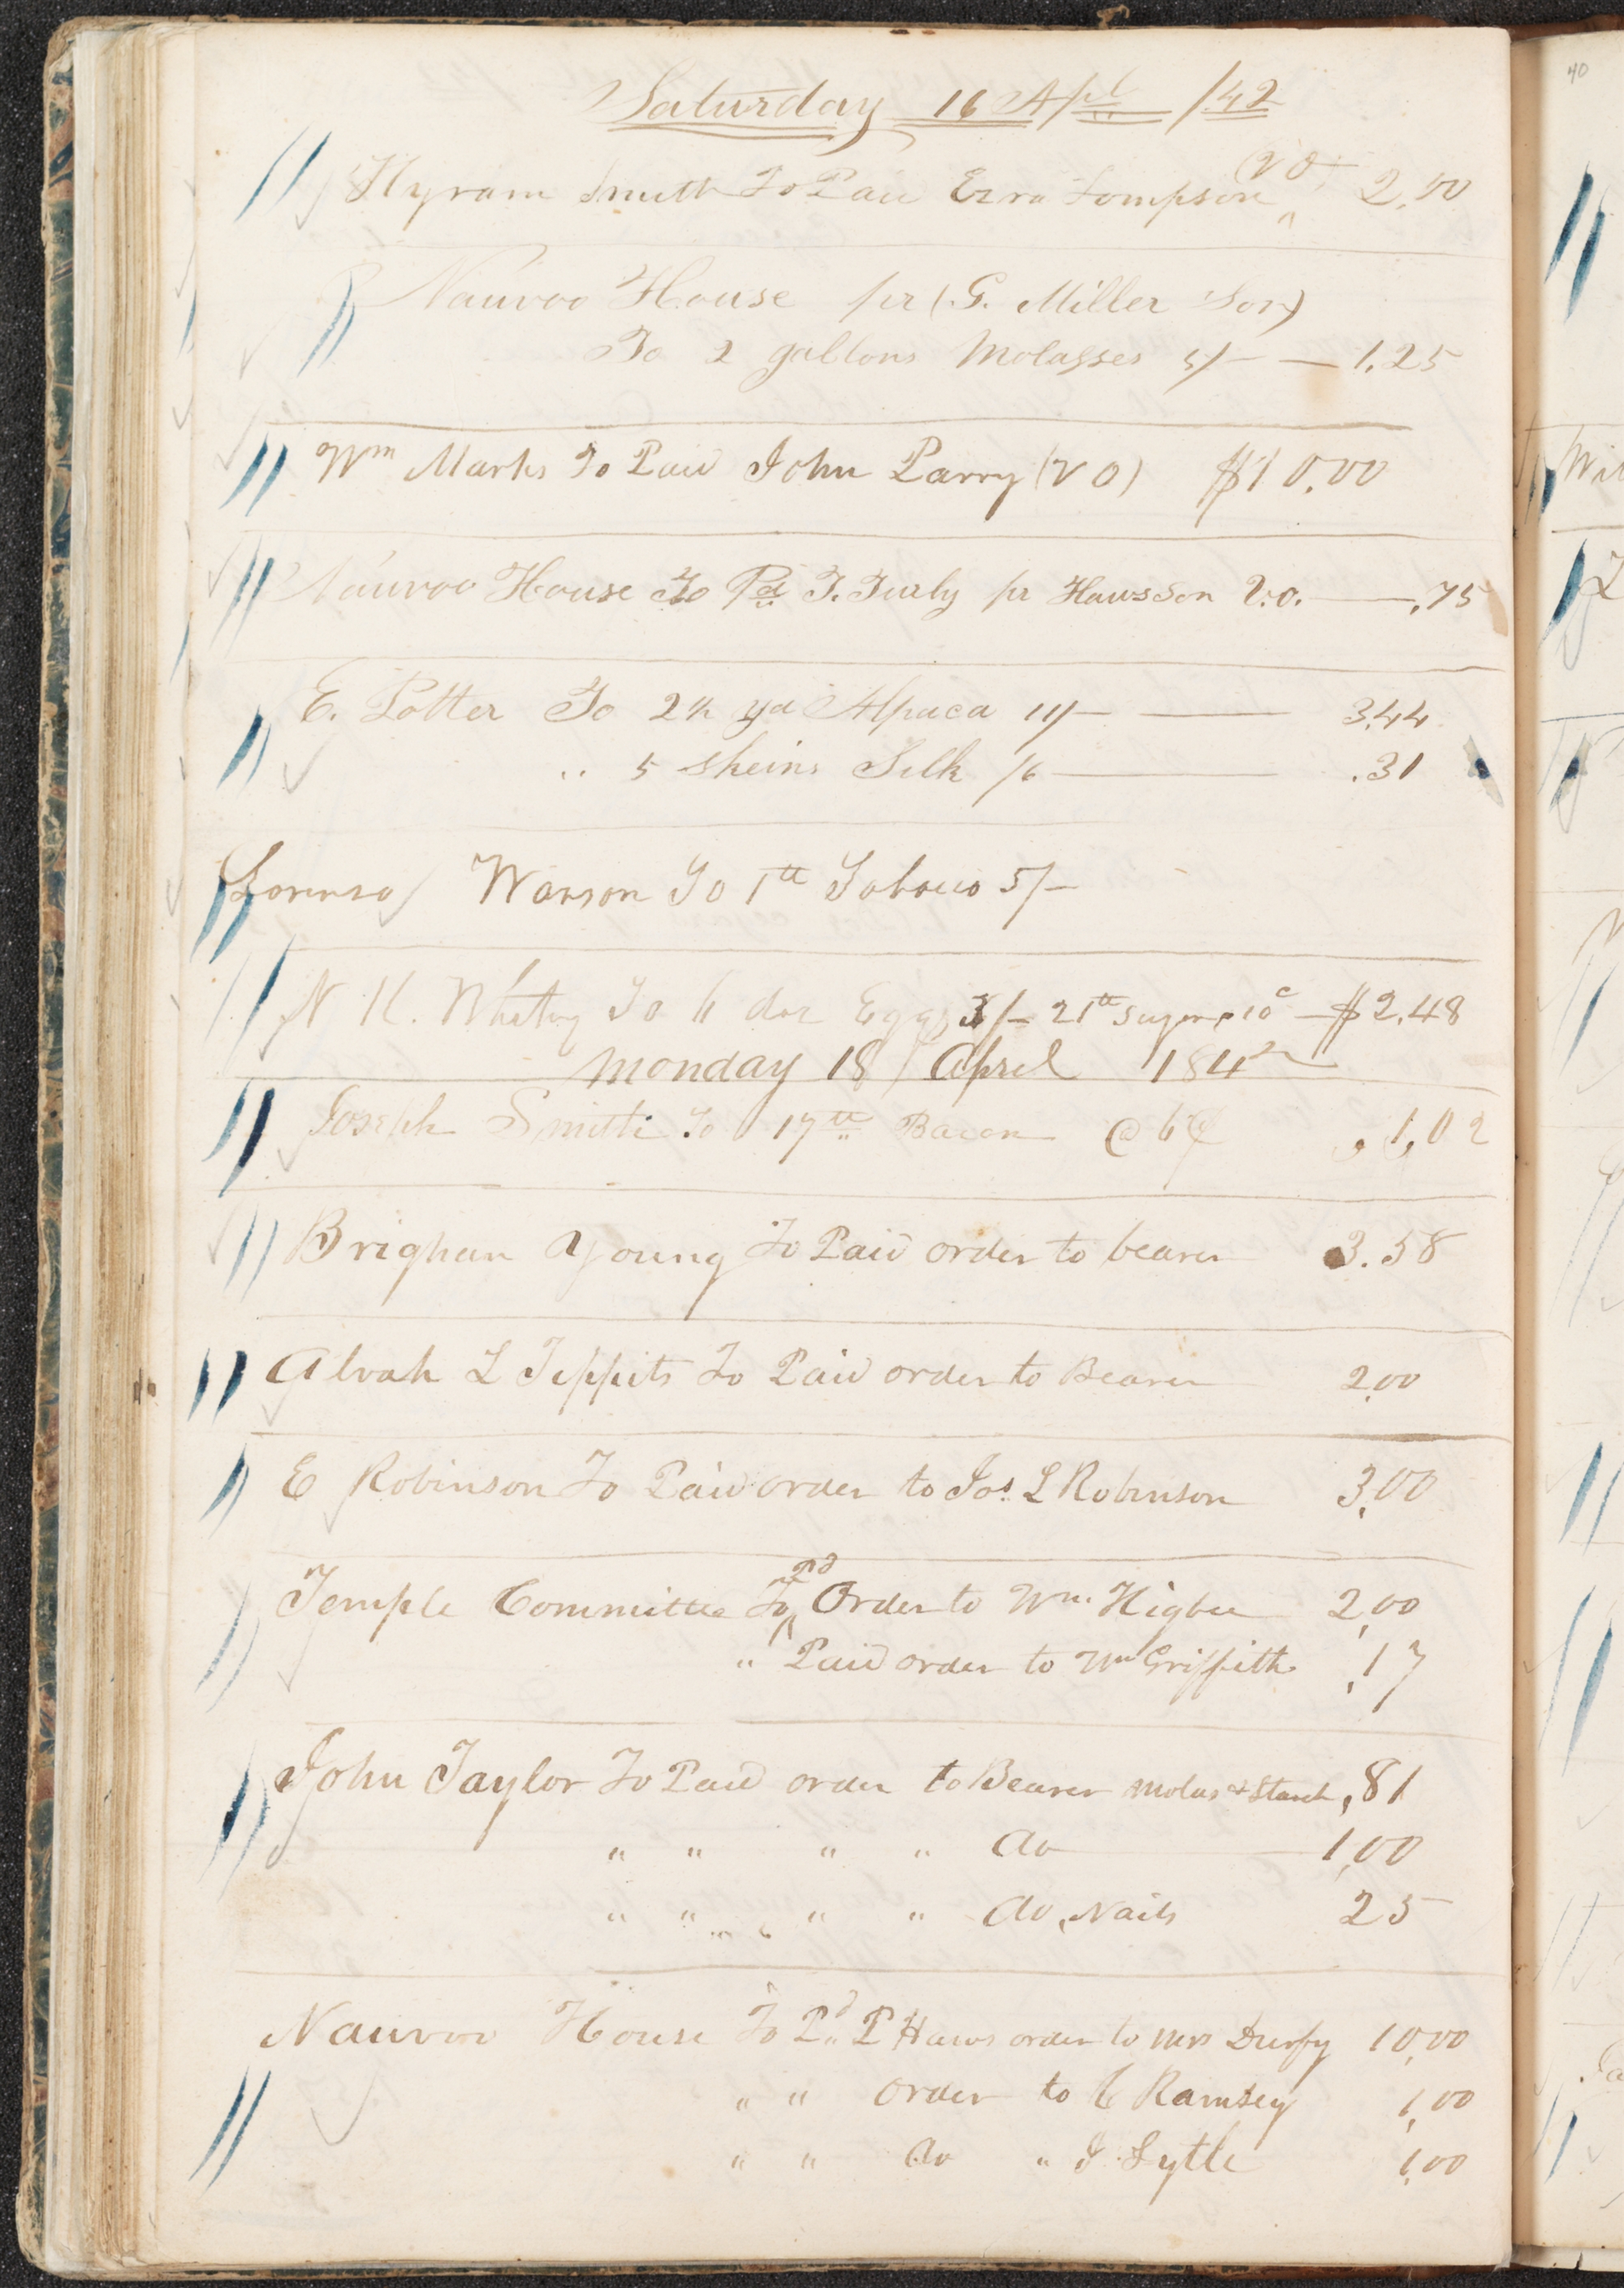 Saturday 16 Apl /42
Hyram Smith To Paid Ezra Tompson (V O) 2,00
Nauvoo House pr (G. Miller Son)
To 2 gallons Molasses 5/– — 1,25
Wm Marks To Paid John Parry (V O) $10,00
Nauvoo House To Pd T. Turly pr Haws Son V.O. — ,75
E. Potter To 2½ yd Alpaca 11/– — 3,44
" 5 skeins Silk /6 — .31
Lorenso Wasson To 1 lb Tobacco 5/–
N K. Whitny To doz Eggs 3/– 21 lb Sugar 10c – $2,48
Monday 18 April 1842
Joseph Smith To 17 lb Bacon @ 6¢ ,1,02
Brigham Young To Paid order to bearer 3.58
Alvah L Tippits To Paid order to Bearer 2,00
E Robinson To Paid order to Jos. L Robinson 3,00
Temple Committee To Pd Order to Wm. Higbee 2,00
" Paid order to Wm Griffith ,17
John Taylor To Paid order to Bearer Molas & Starch ,81
" " " " do 1,00
" " " " do, Nails 25
Nauvoo House To Pd P Haws order to Mrs Durfy 10,00
" " order to C Ramsey 1,00
" " do " J Lytle 1,00
40